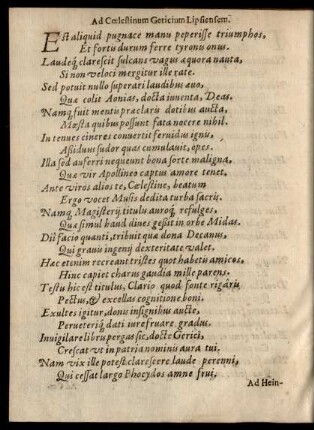 Ad Cœlestinum Gericium Lipsiensem.
Est aliquid pugnace manu peperisse triumphos,
Et fortu durum ferre tyronis onus.
Laudeq́; clarescit sulcans vagus æquora nauta,
Si non veloci mergitur ille rate.
Sed potuit nullo superari laudibus auo,
Quæ colit Aonias, docta iuventa, Deas.
Namq́; fuit mentis præclaris dotibus aucta,
Mœsta quibus possunt fata nocere nihil.
In tenues cineres convertit fervidus ignis,
Assiduus sudor quas cumulavit, opes.
Illa sed auferri nequeunt bona sorte maligna,
Quæ vir Apollineo captus amore tenet.
Ante viros alios te, Cœlestine, beatum
Ergo vocet Musis dedita turba sacris.
Namq́; Magisterij titulus auroq́; refulges,
Quæ simul haud dives gessit in orbe Midas.
Dii facio quanti, tribuit quæ dona Decanus,
Qui gravis ingenij dexteritate valet.
Hæc etenim recreant tristes quot habetis amicos,
Hinc capiet charus gaudia mille parens.
Testis hic est titulus, Clario quod fonte rigaris
Pectus, & excellas cognitione boni.
Exultes igitur, donis insignibus aucte,
Perveterisq́; dati iure fruare gradus.
Invigilare libris pergas sic, docte Gerici,
Crescat ut in patria nominis aura tui.
Nam vix ille potest clarescere laude perenni,
Qui cessat largo Phocydos amne frui,
Ad Hein-